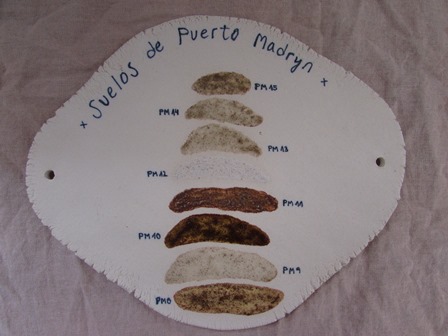 x Suelos de Puerto Madryn x
PM 15
PM 14
PM 13
PM 12
PM 11
PM 10
PM 9
PM 8